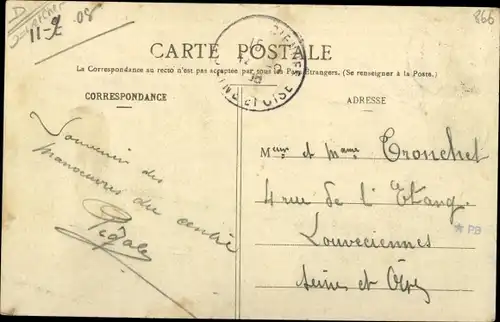 11-9 08
866
CARTE POSTALE
La Correspondance au recto n'est pas acceptée par tous les Pays Étrangers. (Se renseigner à la Poste.)
CORRESPONDANCE
ADRESSE
SEINE ET OISE
Souvenir des
manoeuvres du centre
Meur et Mame Tronchet
4 rue de l'Etang
Louveciennes
Seine et Oise
* PB